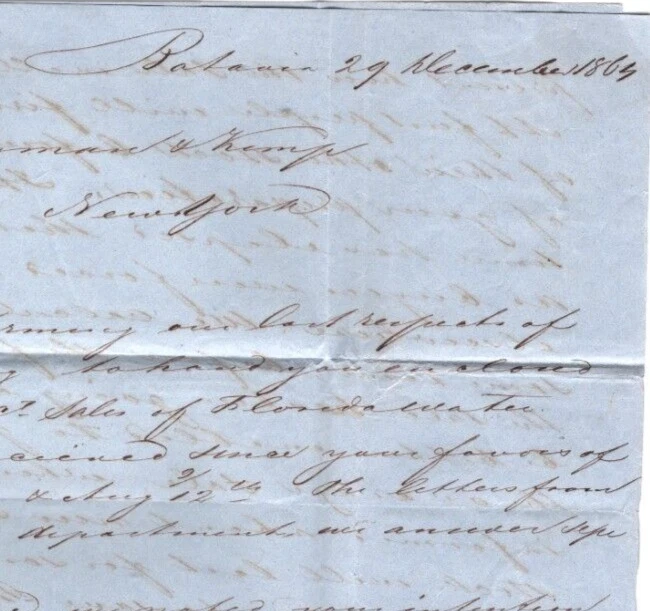 Batavia 29 December 1864
rman & Kemp
New York
rming our last respects of
to hand you enclosed
sales of Florida water.
ceived since your favors of
& Aug 12th the letters from
department we answer sepe
noted your intention